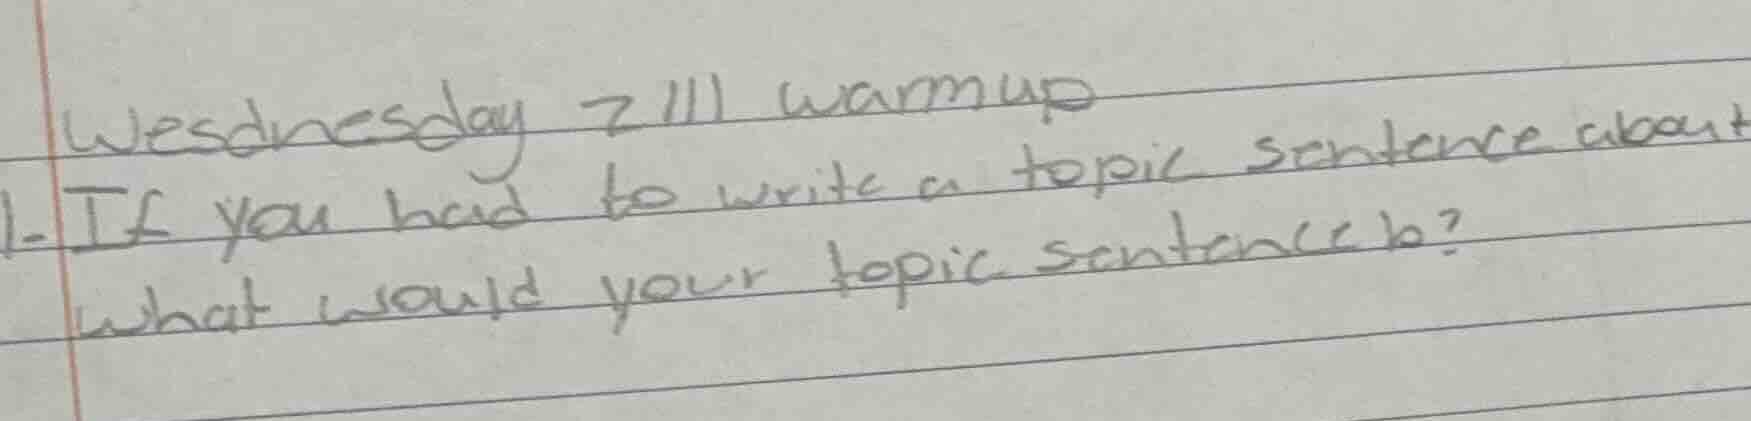 Wesdnesday 7/11 warmup
1- If you had to write a topic sentence about
what would your topic sentence b?